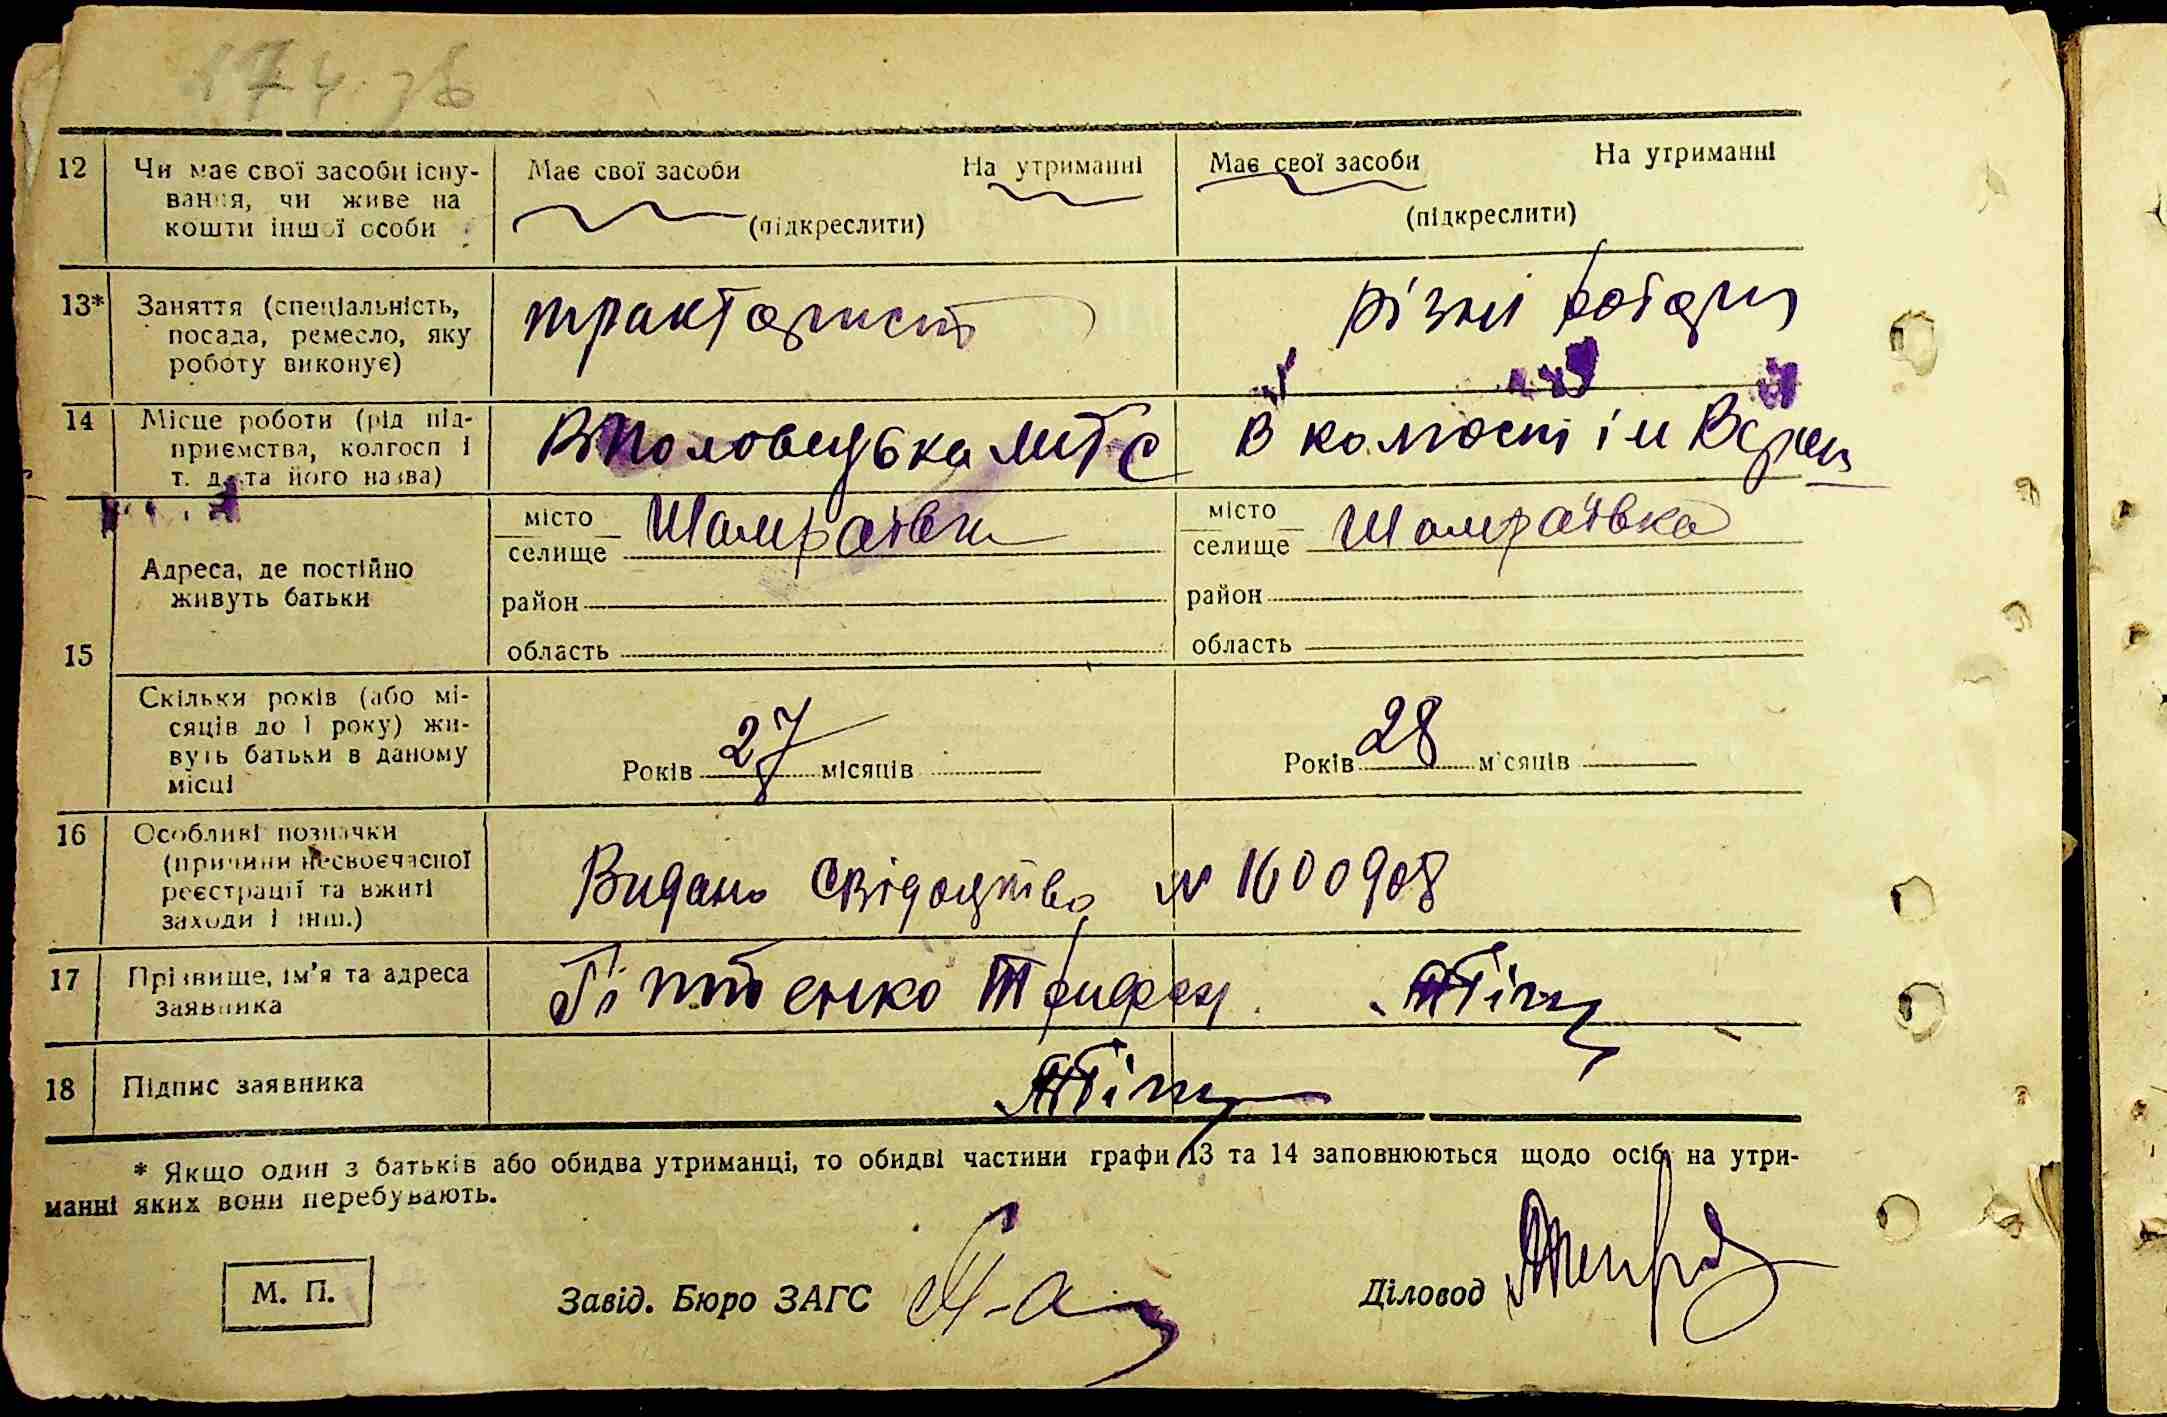 12 Чи має свої засоби існу- Має свої засоби На утриманні Має свої засоби На утриманні
вання, чи живе на
кошти іншої особи (підкреслити) (підкреслити)
13* Заняття (спеціальність, тракторист різні роботи
посада, ремесло, яку
роботу виконує)
14 Місце роботи (рід під- Половецька МТС В колгоспі ім
приємства, колгосп і
т. д. та його назва)
15 Адреса, де постійно
живуть батьки
місто Шамраївка місто Шамраївка
селище селище
район район
область область
Скільки років (або мі-
сяців до 1 року) жи-
вуть батьки в даному
місці
Років 27 місяців Років 28 місяців
16 Особливі позначки
(причини несвоєчасної Видано свідоцтво № 1600908
реєстрації та вжиті
заходи і інш.)
17 Прізвище, ім'я та адреса
заявника
18 Підпис заявника
* Якщо один з батьків або обидва утриманці, то обидві частини графи 13 та 14 заповнюються щодо осіб, на утри-
манні яких вони перебувають.
М. П. Завід. Бюро ЗАГС Діловод